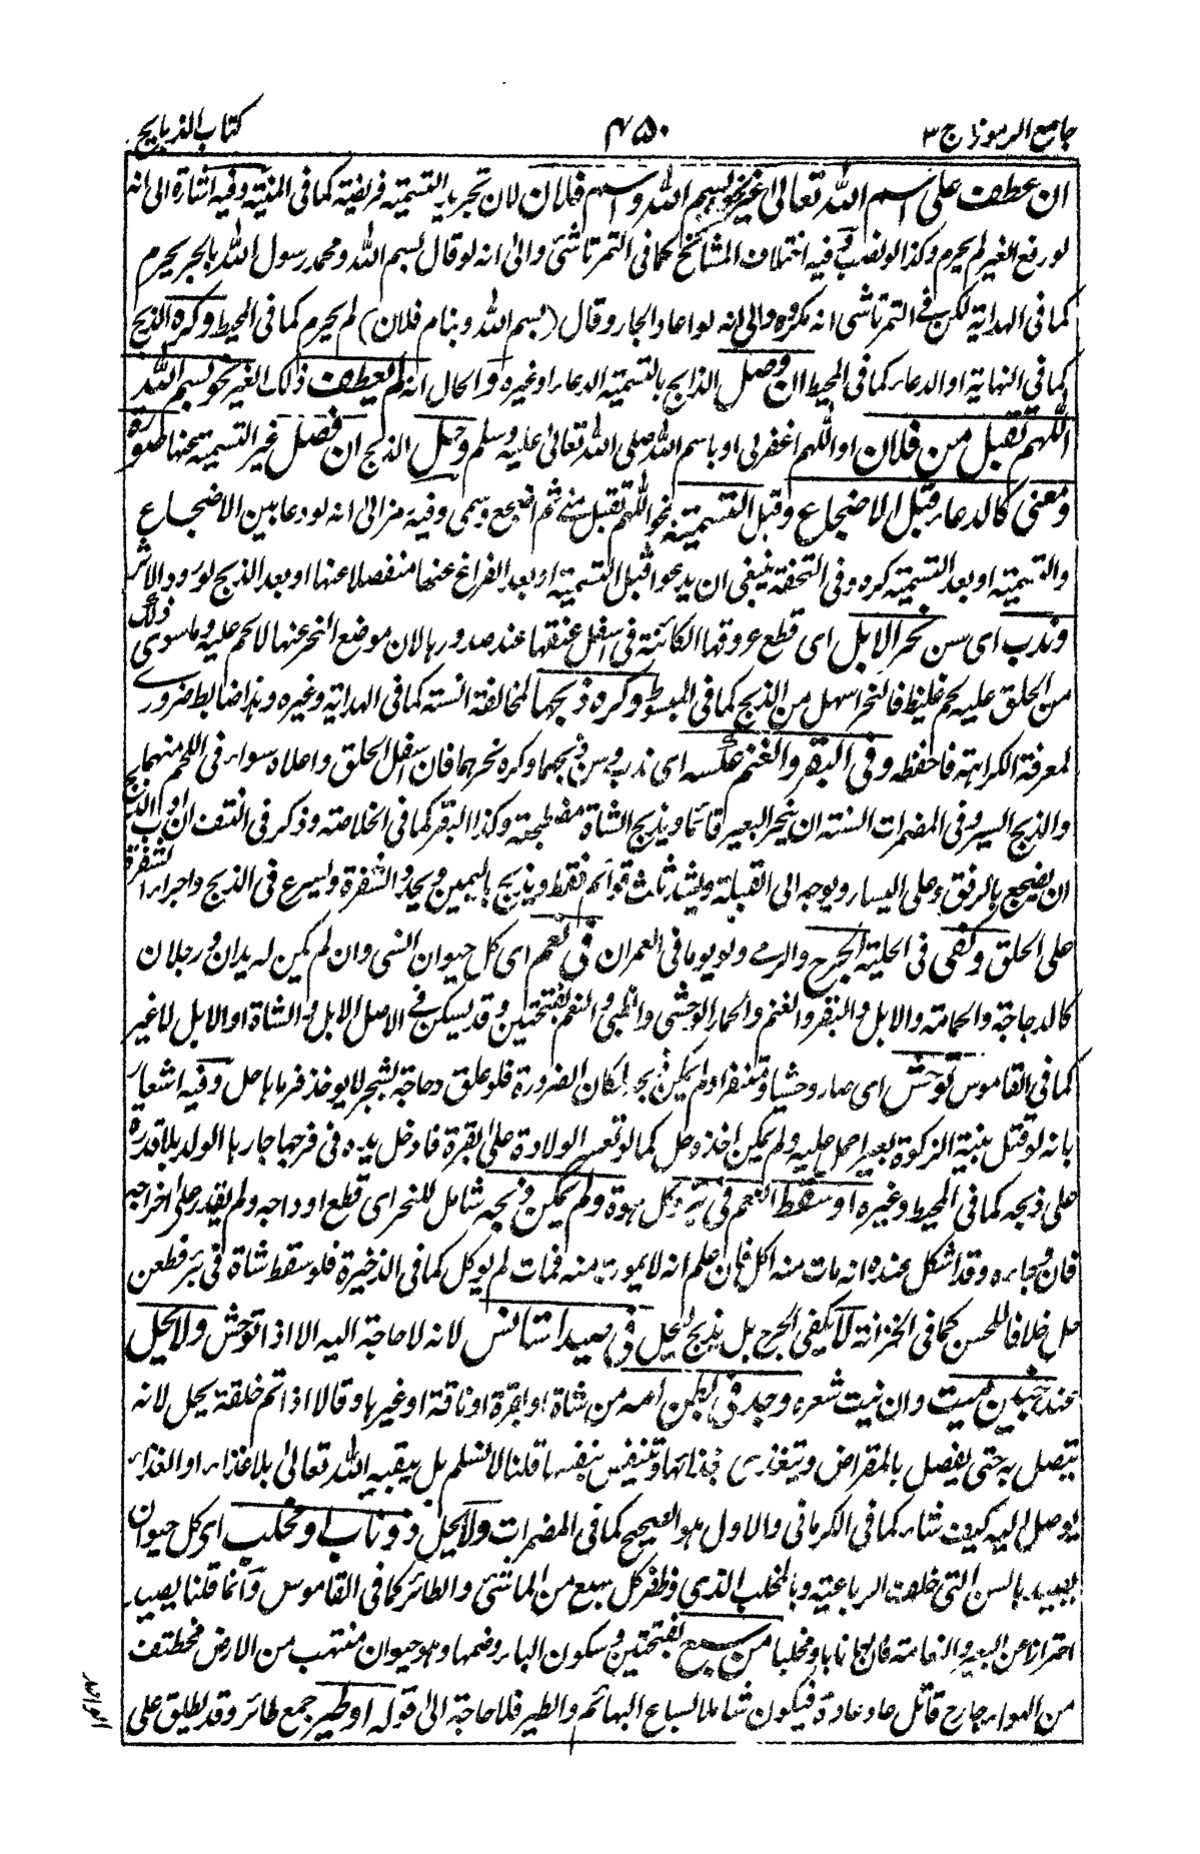 جامع الرموز ج ٣
٤٥٠
كتاب الذبايح
ان عطف على اسم الله تعالى غيره نحو بسم الله واسم فلان لان تجريد التسمية فريضة كما فى المنية وفيه اشارة الى انه
لو رفع الغير لم يحرم وكذا لو نصب وفيه اختلاف المشائخ كما فى التمرتاشى والى انه لو قال بسم الله ومحمد رسول الله بالجر يحرم
كما فى الهداية لكن فى التمرتاشى انه مكروه والى انه لو اعاد الجار وقال (بسم الله وبنام فلان) لم يحرم كما فى المحيط وكره الذبح
كما فى النهاية او الدعاء كما فى المحيط ان وصل الذابح بالتسمية الدعاء او غيره والحال انه لم يعطف ذلك الغير نحو بسم الله
اللهم تقبل من فلان او اللهم اغفر لى او باسم الله صلى الله تعالى عليه وسلم وحل الذبح ان فصل غير التسمية عنها صورة
ومعنى كالدعاء قبل الاضجاع وقبل التسمية نحو اللهم تقبل منى ثم اضجع وسمى وفيه رمز الى انه لو دعا بين الاضجاع
والتسمية او بعد التسمية كره وفى التحفة ينبغى ان يدعو قبل التسمية او بعد الفراغ عنها منفصلا عنها او بعد الذبح لورود الاثر
وندب اى سن نحر الابل اى قطع عروقها الكائنة فى اسفل عنقها عند صدورها لان موضع النحر عنها لا لحم عليه وما سوى ذلك
من الحلق عليه لحم غليظ فالنحر اسهل من الذبح كما فى المبسوط وكره ذبحها لمخالفة السنة كما فى الهداية وغيره وهذا ضابط ضرورى
لمعرفة الكراهة فاحفظه وفى البقر والغنم عكسه اى ندب وسن ذبحهما وكره نحرهما فان اسفل الحلق واعلاه سواء فى اللحم منهما
والذبح ايسر وفى المضمرات السنة ان ينحر البعير قائما ويذبح الشاة مضطجعة وكذا البقر كما فى الخلاصة وذكر فى النتف ان
ان يضجع بالرفق وعلى اليسار ويوجه الى القبلة ويشد ثلث قوائم فقط ويذبح باليمين ويحد الشفرة ويسرع فى الذبح واجراء الشفرة
على الحلق وكفى فى الحلية الجرح والرمى ولو يوما فى العمران فى نعم اى كل حيوان انسى وان لم يكن له يدان ورجلان
كالدجاجة والحمامة والابل والبقر والغنم والحمار الوحشى والظبى والنعم بفتحتين وقد يسكن فى الاصل الابل والشاة او الابل لا غير
كما فى القاموس توحش اى صار وحشيا ومتنفرا ولم يمكن ذبحه لمكان الضرورة فلو علق دجاجة بشجر لا يوخذ فرماها حل وفيه اشعار
بانه لو قتل بنية الزكوة بعيرا صال عليه ولم يمكن اخذه حل كما لو تعسر الولادة على البقرة فادخل يده فى فرجها جارها الولد بلا قدرة
على ذبحه كما فى المحيط وغيره او سقط النعم فى بئر وكل هوة ولم يمكن ذبحه شامل للنحر اى قطع اوداجه ولم يقدر على اخراجه
فان وجا بره وقد اشكل عنده انه مات منه اكل فان علم انه لا يموت منه فمات لم يوكل كما فى الذخيرة فلو سقط شاة فى بئر فطعن
حل خلافا للحسن كما فى الخزانة لا يكفى الجرح بل يذبح ليحل فى صيد استانس لانه لا حاجة اليه الا اذا توحش ولا يحل
عنده جنين ميت وان نبت شعره وجد فى بطن امه من شاة او بقرة او ناقة او غيرها وقالا اذا تم خلقة يحل لانه
يتصل به حتى يفصل بالمقراض ويتغذى بغذائها ويتنفس بنفسها قلنا لا نسلم بل يبقيه الله تعالى بلا غذاء او الغذاء
يوصل اليه كيف شاء كما فى الكرمانى والاول هو الصحيح كما فى المضمرات ولا يحل ذو ناب او مخلب اى كل حيوان
يصيد بالسن التى خلف الرباعية وبالمخلب الذى وظفر كل سبع من الماشى والطائر كما فى القاموس وانما قلنا يصيد
احترازا عن البعير والنعامة فان لهما نابا ومخلبا من سبع بفتحتين وسكون الباء وضمها وهو حيوان منتهب من الارض مختطف
من الهواء جارح قاتل عاد عادة فيكون شاملا لسباع البهائم والطير فلا حاجة الى قوله او طير جمع طائر وقد يطلق على
الواحد